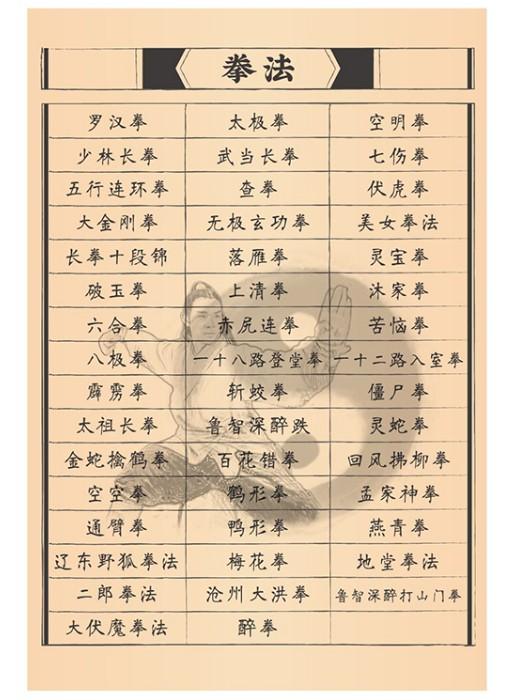 拳法
罗汉拳 太极拳 空明拳
少林长拳 武当长拳 七伤拳
五行连环拳 查拳 伏虎拳
大金刚拳 无极玄功拳 美女拳法
长拳十段锦 落雁拳 灵宝拳
破玉拳 上清拳 沐家拳
六合拳 赤尻连拳 苦恼拳
八极拳 一十八路登堂拳 一十二路入室拳
霹雳拳 斩蛟拳 僵尸拳
太祖长拳 鲁智深醉跌 灵蛇拳
金蛇擒鹤拳 百花错拳 回风拂柳拳
空空拳 鹤形拳 孟家神拳
通臂拳 鸭形拳 燕青拳
辽东野狐拳法 梅花拳 地堂拳法
二郎拳法 沧州大洪拳 鲁智深醉打山门拳
大伏魔拳法 醉拳